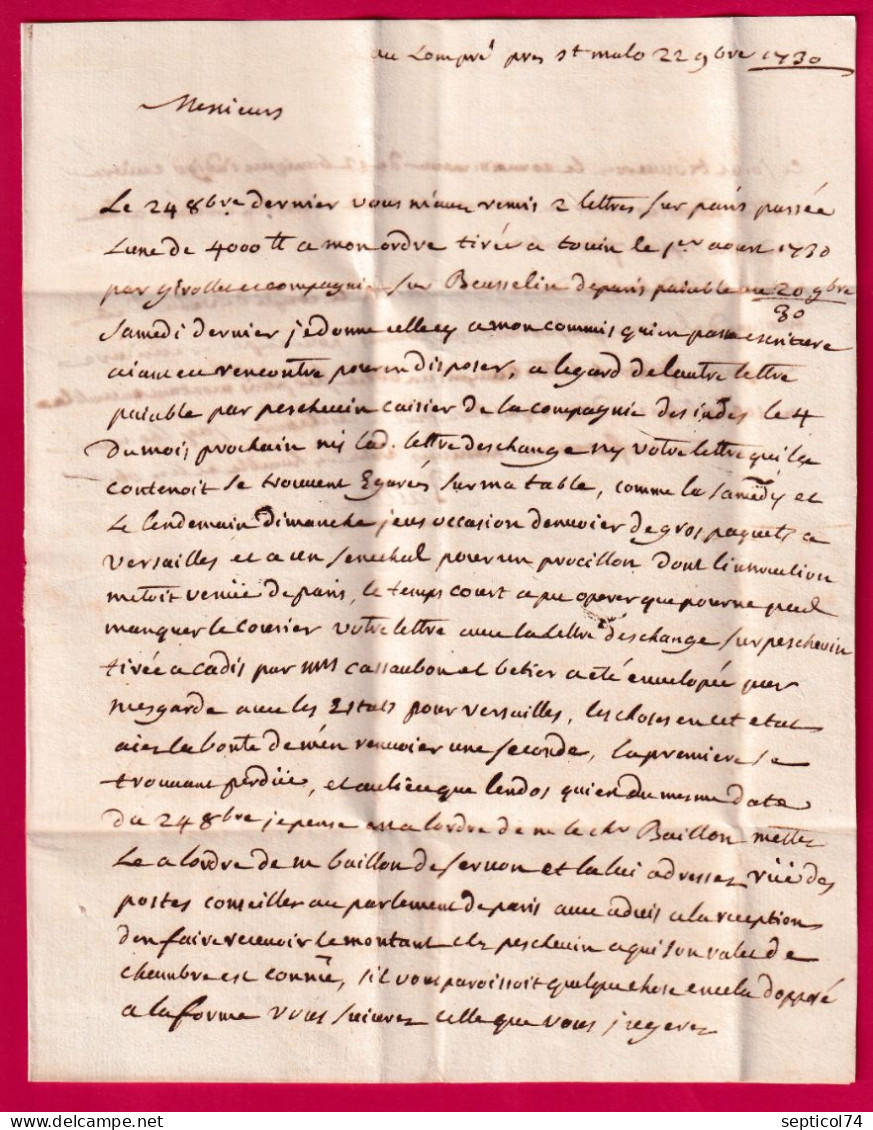 au Lompré pres st malo 22 9bre 1730
Messieurs
Le 24 8bre dernier vous m'avez remis 2 lettres sur paris passée
Lune de 4000 tt a mon ordre tirée a touin le 1er aoust 1730
par girolles et compagnie sur Beusselin de paris paiable au 20 9bre
80
Samedi dernier je donne celle cy a mon commis qui en passe escriture
aiant eu rencontre pour en disposer, a legard de lautre lettre
paiable par peschevin caisier de la compagnie des indes le 4
du mois prochain ny lad. lettre deschange ny votre lettre qui la
contenoit se trouvent Egarées sur ma table, comme la samedy et
Le lendemain dimanche jeus occasion denvoier de gros paquets a
versailles et a un senechal pour un procillon dont l'invention
metoit venüe de paris, le temps court a pu operer que pour ne pas
manquer le courier votre lettre avec la lettre deschange sur peschevin
tirée a cadis par mrs cassaubon et betier a eté envelopée par
mesgarde avec les Estats pour versailles, les choses en cet etat
aiez la bonté de m'en renvoier une seconde, la premiere se
trouvant perdüe, et au lieu que lendos qui est du mesme date
du 24 8bre je pense est a lordre de m le chr Baillon mettez
Le a lordre de m baillon de servon et la lui adressez rüe des
postes conseiller au parlement de paris avec advis a la reception
den faire recevoir le montant chez peschevin a qui son valet de
chambre est connu, sil vous paroissoit quelque chose en cela dopposé
a la forme vous suivrez celle que vous jugerez
www.delcampe.net
septicol74